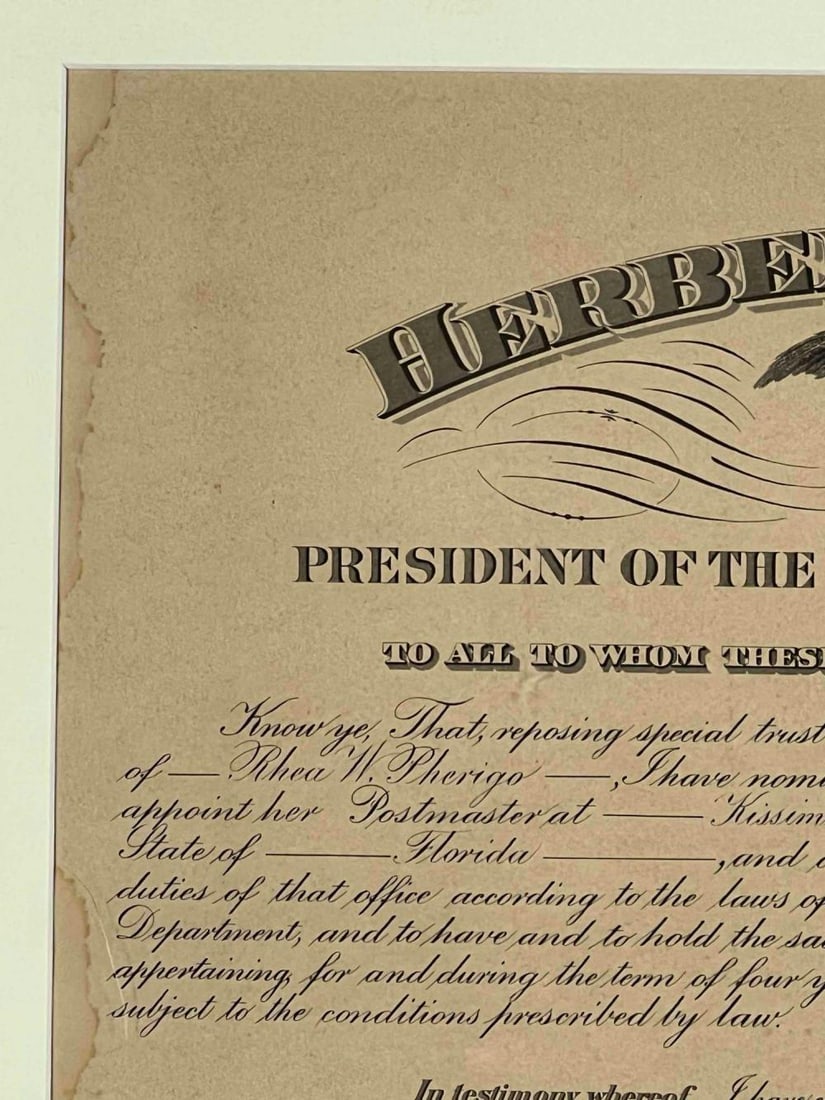 HERBE
PRESIDENT OF THE
TO ALL TO WHOM THESE
Know ye, That, reposing special trust
of — Rhea W. Pherigo —, I have nomi
appoint her Postmaster at — Kissim
State of — Florida —, and
duties of that office according to the laws of
Department, and to have and to hold the sa
appertaining, for and during the term of four y
subject to the conditions prescribed by law.
In testimony whereof, I have